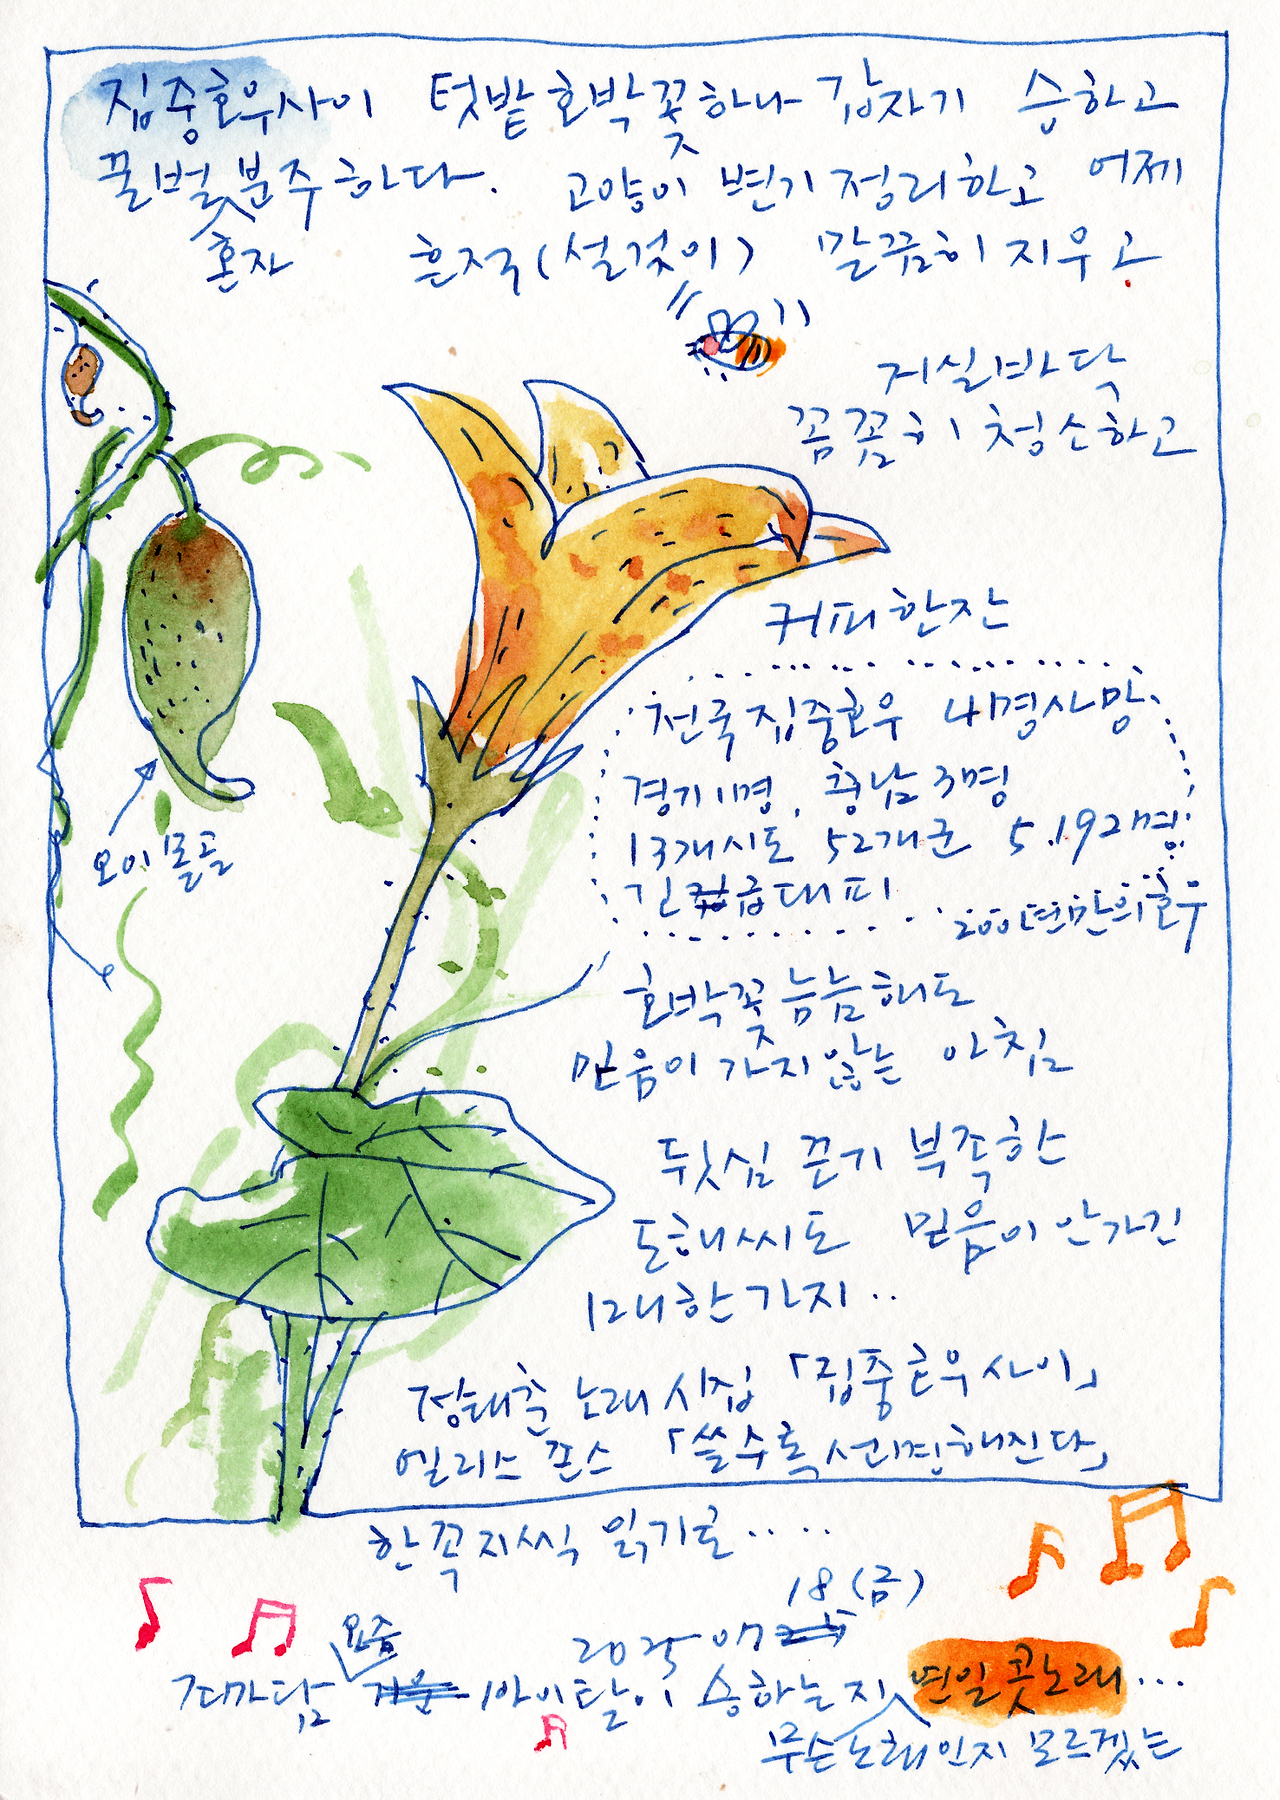 집중호우사이 텃밭 호박꽃하나 갑자기 승하고
꿀벌 혼자 분주하다. 고양이 변기 정리하고 어제
흔적(설겆이) 말끔히 지우고
거실바닥
꼼꼼히 청소하고
커피한잔
전국집중호우 4명사망
경기1명, 충남3명
13개시도 52개군 5.192명
긴급대피
200년만의호우
오이몰골
호박꽃 늠늠해도
믿음이 가지않는 아침
뒷심 끈기 부족한
도해씨도 믿음이 안가긴
매한가지..
정태춘 노래 시집 「집중호우사이」
엘리스 먼로 「쓸수록 선명해진다」
한꼭지씩 읽기로....
2025 07 18(금)
요즘 아이탈이 승하는지 무슨노래인지 모르겠는 연일 콧노래...